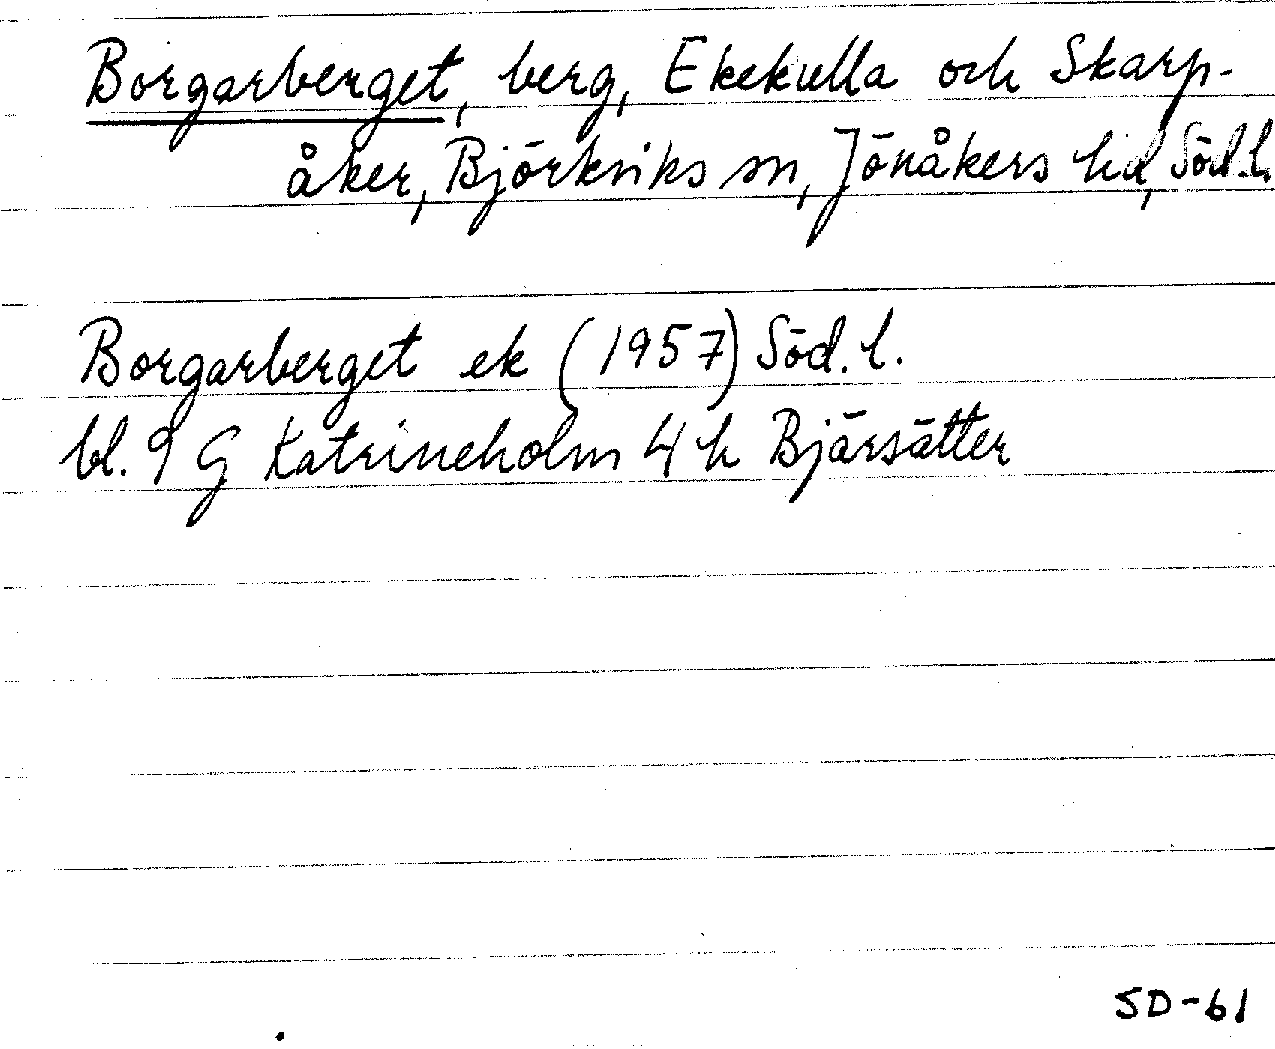 Borgarberget, berg, Ekekulla och Skarp-
åker, Björkviks sn, Jönåkers hd, Söd.l.
Borgarberget ek (1957) Söd.l.
bl. 9 G Katrineholm 4 h Bjärsätter
SD-61